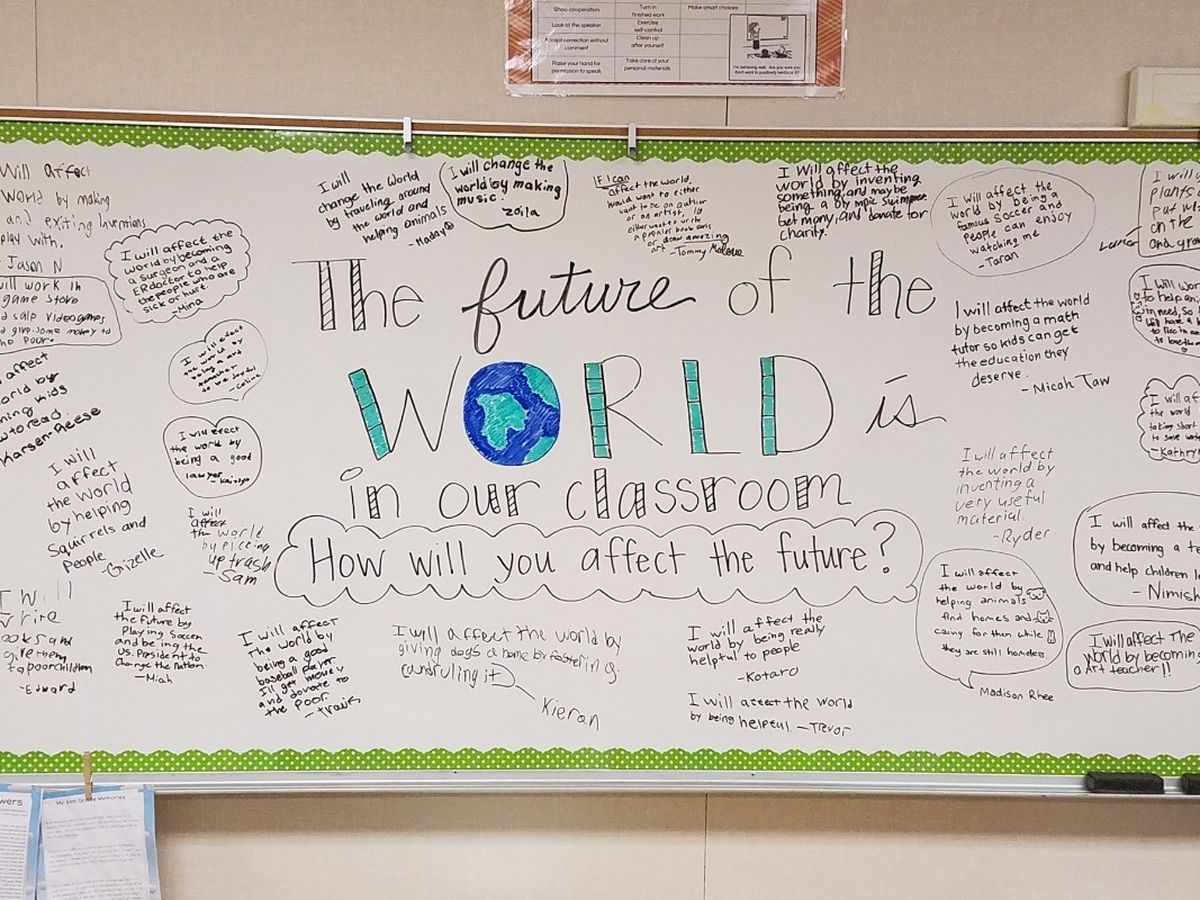 Show cooperation
Look at the speaker
Accept correction without
comment
Raise your hand for
permission to speak
Turn in
finished work
Exercise
self-control
Clean up
after yourself
Take care of your
personal materials
Make smart choices
I'm behaving well. Are you sure you
don't want to positively reinforce it?
The future of the
WORLD is
in our classroom
How will you affect the future?
Will affect
World by making
and exiting Inventions
play with.
- Jason N
will work in
game store
videogames
give some money to
Poor.
affect
world by
kids
to read
Karsen-Reese
I will affect the
world by becoming
a surgeon and a
ER doctor to help
the people who are
sick or hurt.
-Mina
I will efect
the world by
being a art
-Celine
I will efect
the world by
being a good
lawyer
I will
affect
the world
by helping
Squirrels and
people
-Gizelle
I will
affect
the world
by picking
up trash
-Sam
I will
write
books and
give them
to poor children
-Edward
I will affect
the future by
Playing Soccer
and being the
US. President to
Change the Nation.
-Miah
I will affect
The world by
being a good
baseball player.
I'll get money
and donate to
the poor.
-Travis
I will
change the world
by traveling around
the world and
helping animals
I will change the
world by making
music.
-Zoila
If I can
affect the world,
would want to either
want to be an author
or an artist, I'd
either want to write
a popular book saris
or draw amazing
art
-Tommy
I Will affect the
world by inventing
something, and maybe
being a Olympic Swimmer,
get mony, and donate for
charity.
I will affect the
world by being a
famous soccer and
people can enjoy
watching me
-Taran
I will affect the world
by becoming a math
tutor so kids can get
the education they
deserve.
- Micah Taw
I will affect
the world by
inventing a
very useful
material.
-Ryder
I will affect
the world by
helping animals
find homes and
caring for them while
they are still homeless
Madison Rhee
I will
plants
put
on the
and
I will
to help
in need, so
I will af
the world
taking short
to save
-Kathry
I will affect the
by becoming a te
and help children
- Nimish
I will affect The
world by becoming
a Art teacher!!
I will affect the world by
giving dogs a home by fostering
Kieran
I will affect the
world by being really
helpful to people
-Kotaro
I will affect the world
by being helpful. -Trevor
wers
My 5th Grade Memories